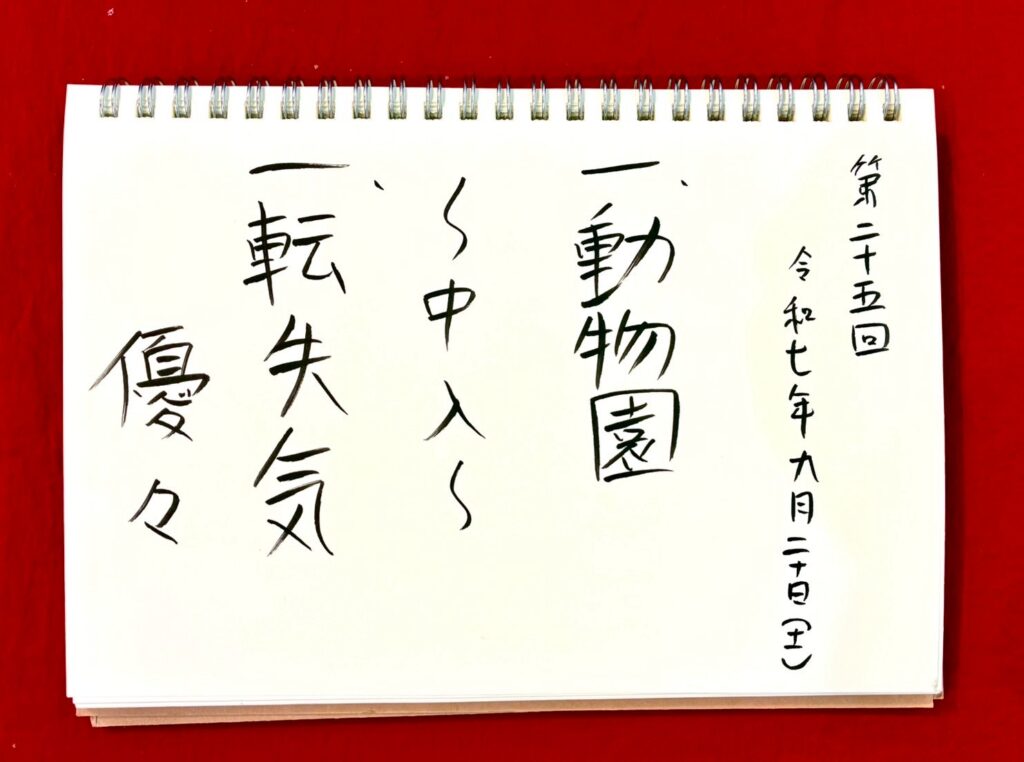 第二十五回
令和七年九月二十日(土)
一、動物園
〜中入〜
一、転失気
優々